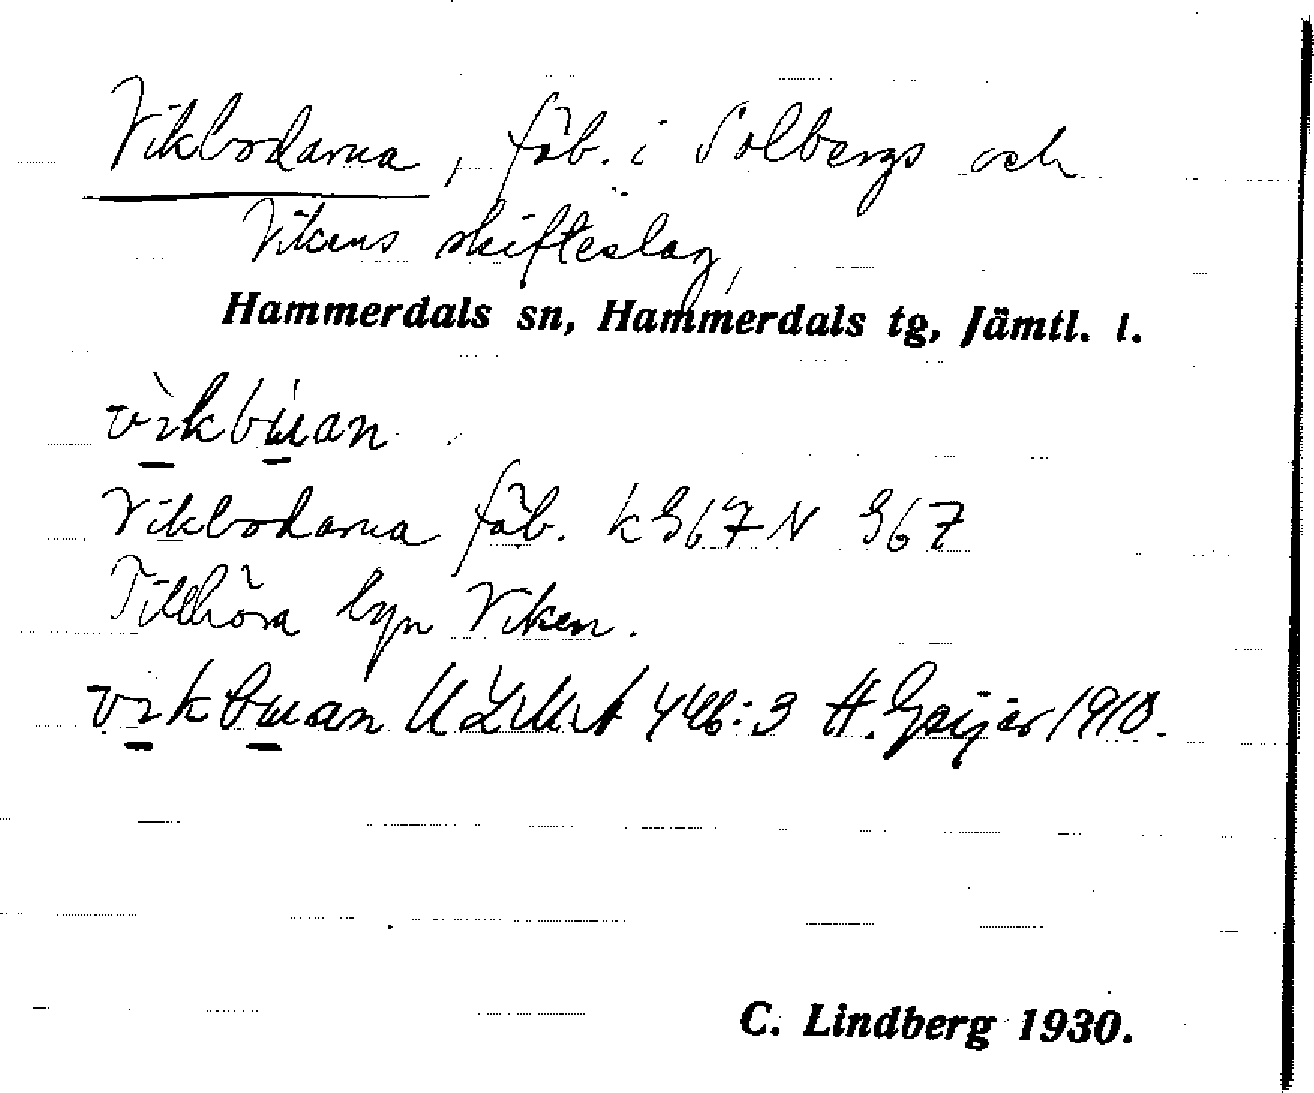 Vikbodarna, fäb. i Solbergs och
Vikens skifteslag,
Hammerdals sn, Hammerdals tg, Jämtl. l.
vikbuan
Vikbodarna fäb. k G67 N G67
Tillhöra byn Viken.
vikbuan ULMA 446:3 H. Geijer 1910.
C. Lindberg 1930.